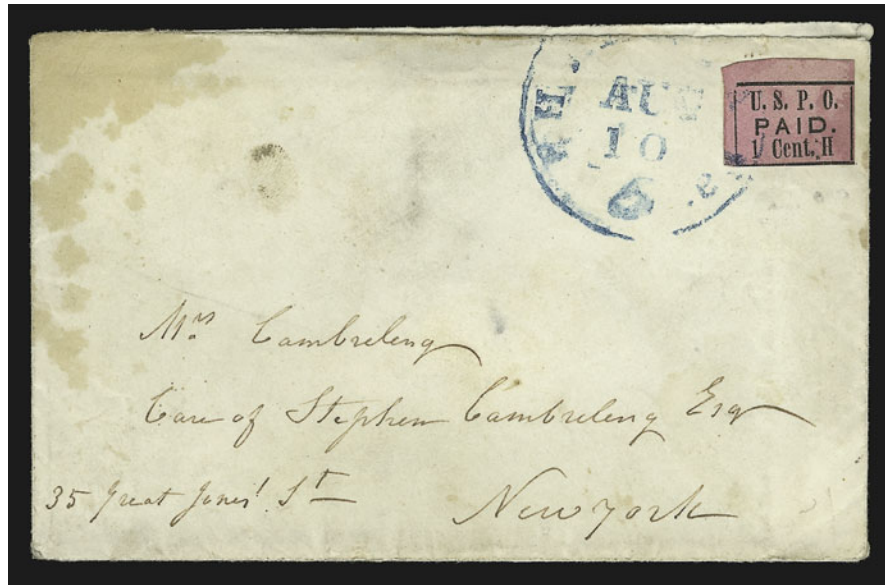 U. S. P. O.
PAID.
1 Cent. H
AUG
10
Mrs Cambreleng
Care of Stephen Cambreleng Esq
35 Great Jones' St
New York